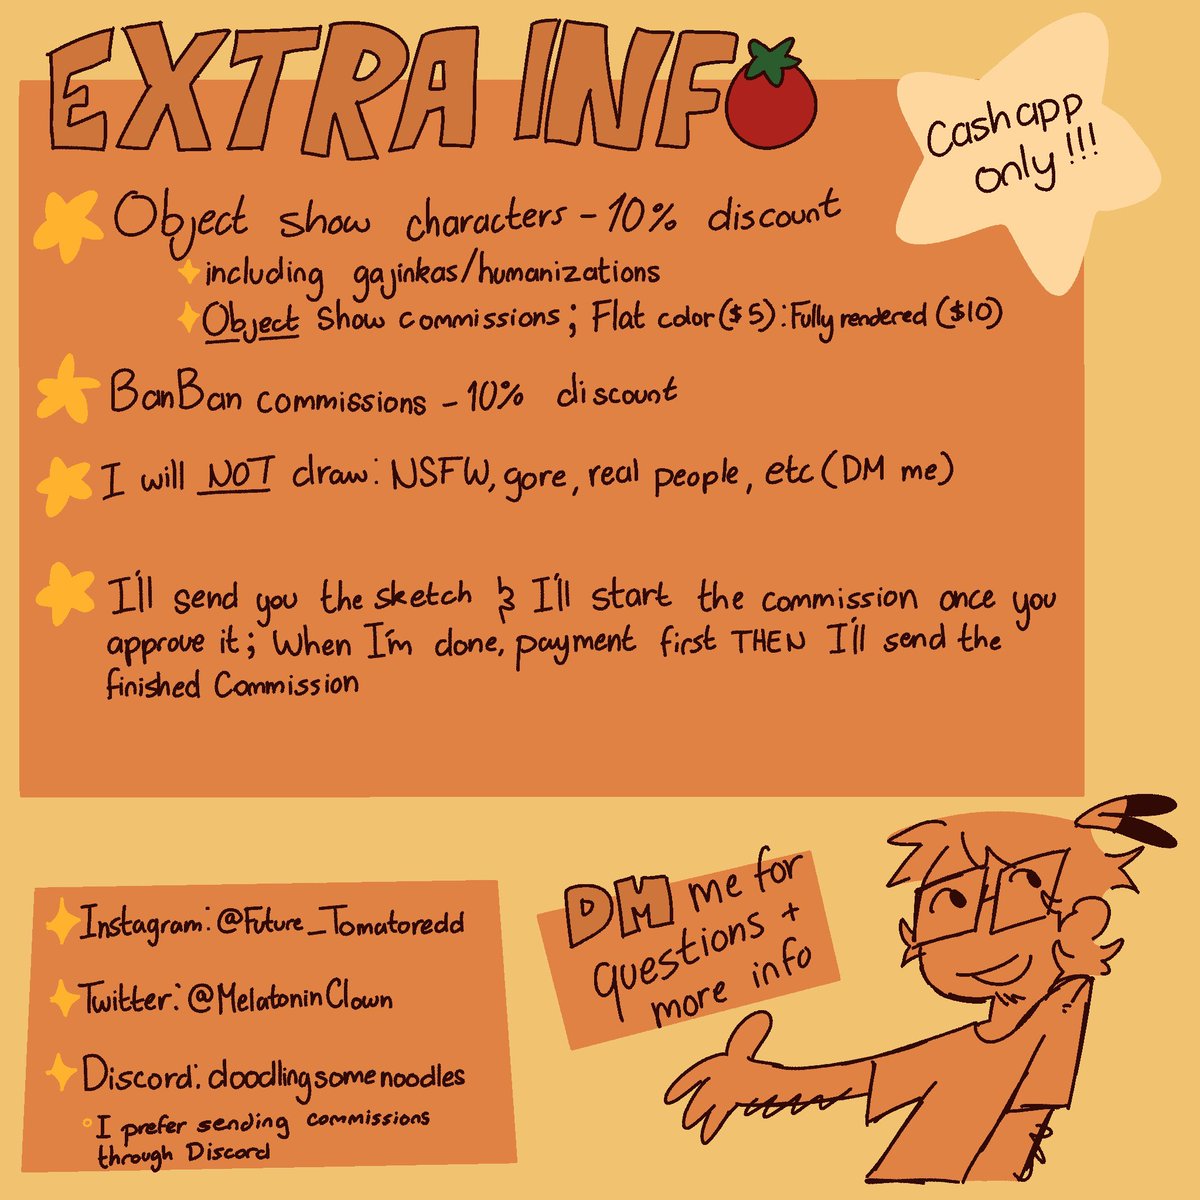 EXTRA INFO
Cash app
only!!!
Object show characters - 10% discount
including gajinkas/humanizations
Object Show commissions; Flat color ($5): Fully rendered ($10)
BanBan commissions - 10% discount
I will NOT draw: NSFW, gore, real people, etc (DM me)
I'll send you the sketch & I'll start the commission once you
approve it; When I'm done, payment first THEN I'll send the
finished Commission
Instagram: @Future_Tomatoredd
Twitter: @MelatoninClown
Discord: doodlingsomenoodles
I prefer sending commissions
through Discord
DM me for
questions +
more info